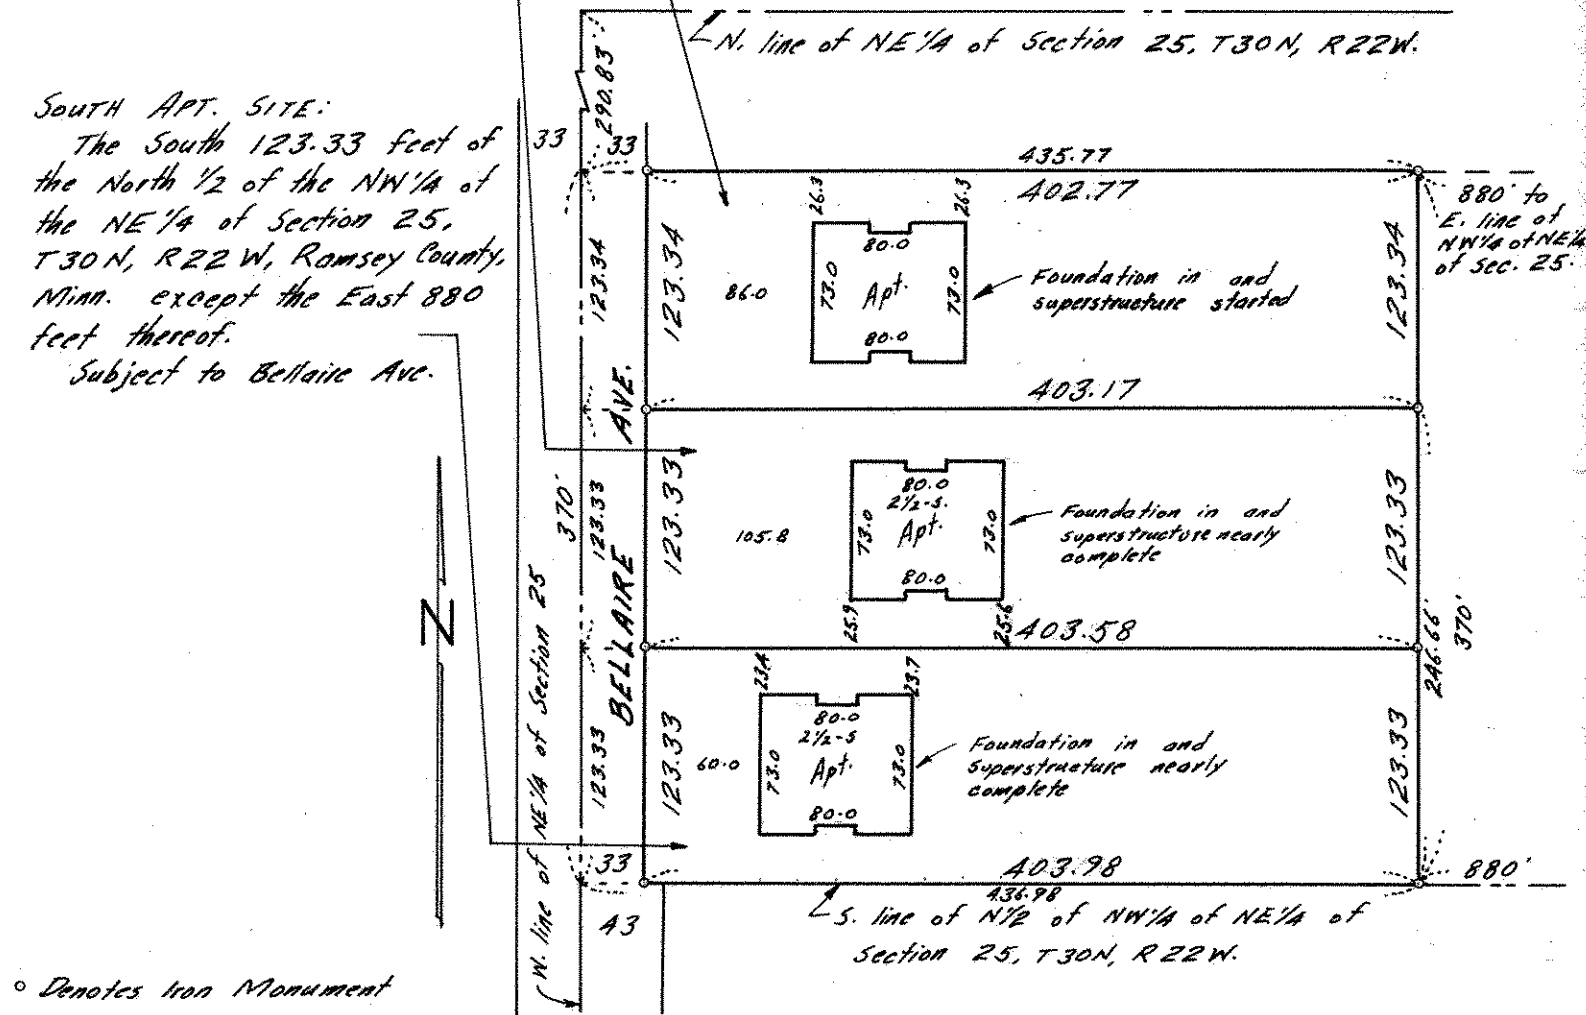 N. line of NE 1/4 of Section 25, T30N, R22W.
290.83
SOUTH APT. SITE:
The South 123.33 feet of
the North 1/2 of the NW 1/4 of
the NE 1/4 of Section 25,
T30N, R22W, Ramsey County,
Minn. except the East 880
feet thereof.
Subject to Bellaire Ave.
33
33
435.77
402.77
880' to
E. line of
NW 1/4 of NE 1/4
of Sec. 25.
26.3
26.3
123.34
123.34
86.0
80.0
73.0
Apt.
73.0
80.0
Foundation in and
superstructure started
123.34
403.17
370'
123.33
123.33
105.8
80.0
2 1/2-S.
73.0
Apt.
73.0
80.0
Foundation in and
superstructure nearly
complete
123.33
25.9
25.6
403.58
246.66'
370'
BELLAIRE AVE.
N
W. line of NE 1/4 of Section 25
123.33
123.33
60.0
23.4
23.7
80.0
2 1/2-S
73.0
Apt.
73.0
80.0
Foundation in and
Superstructure nearly
complete
123.33
33
403.98
436.98
880'
43
S. line of N 1/2 of NW 1/4 of NE 1/4 of
Section 25, T30N, R22W.
Denotes Iron Monument